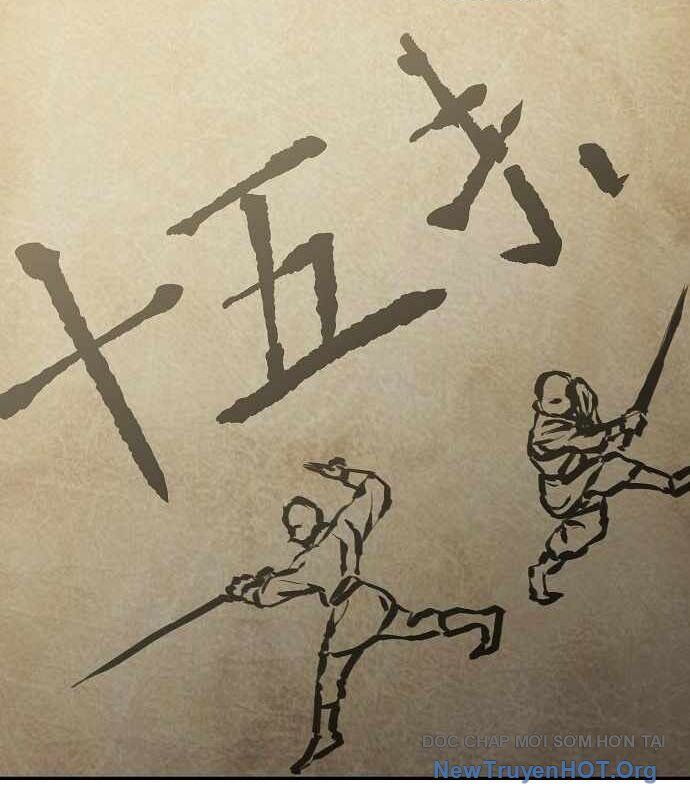 十五
ĐỌC CHAP MỚI SỚM HƠN TẠI
NewTruyenHOT.Org